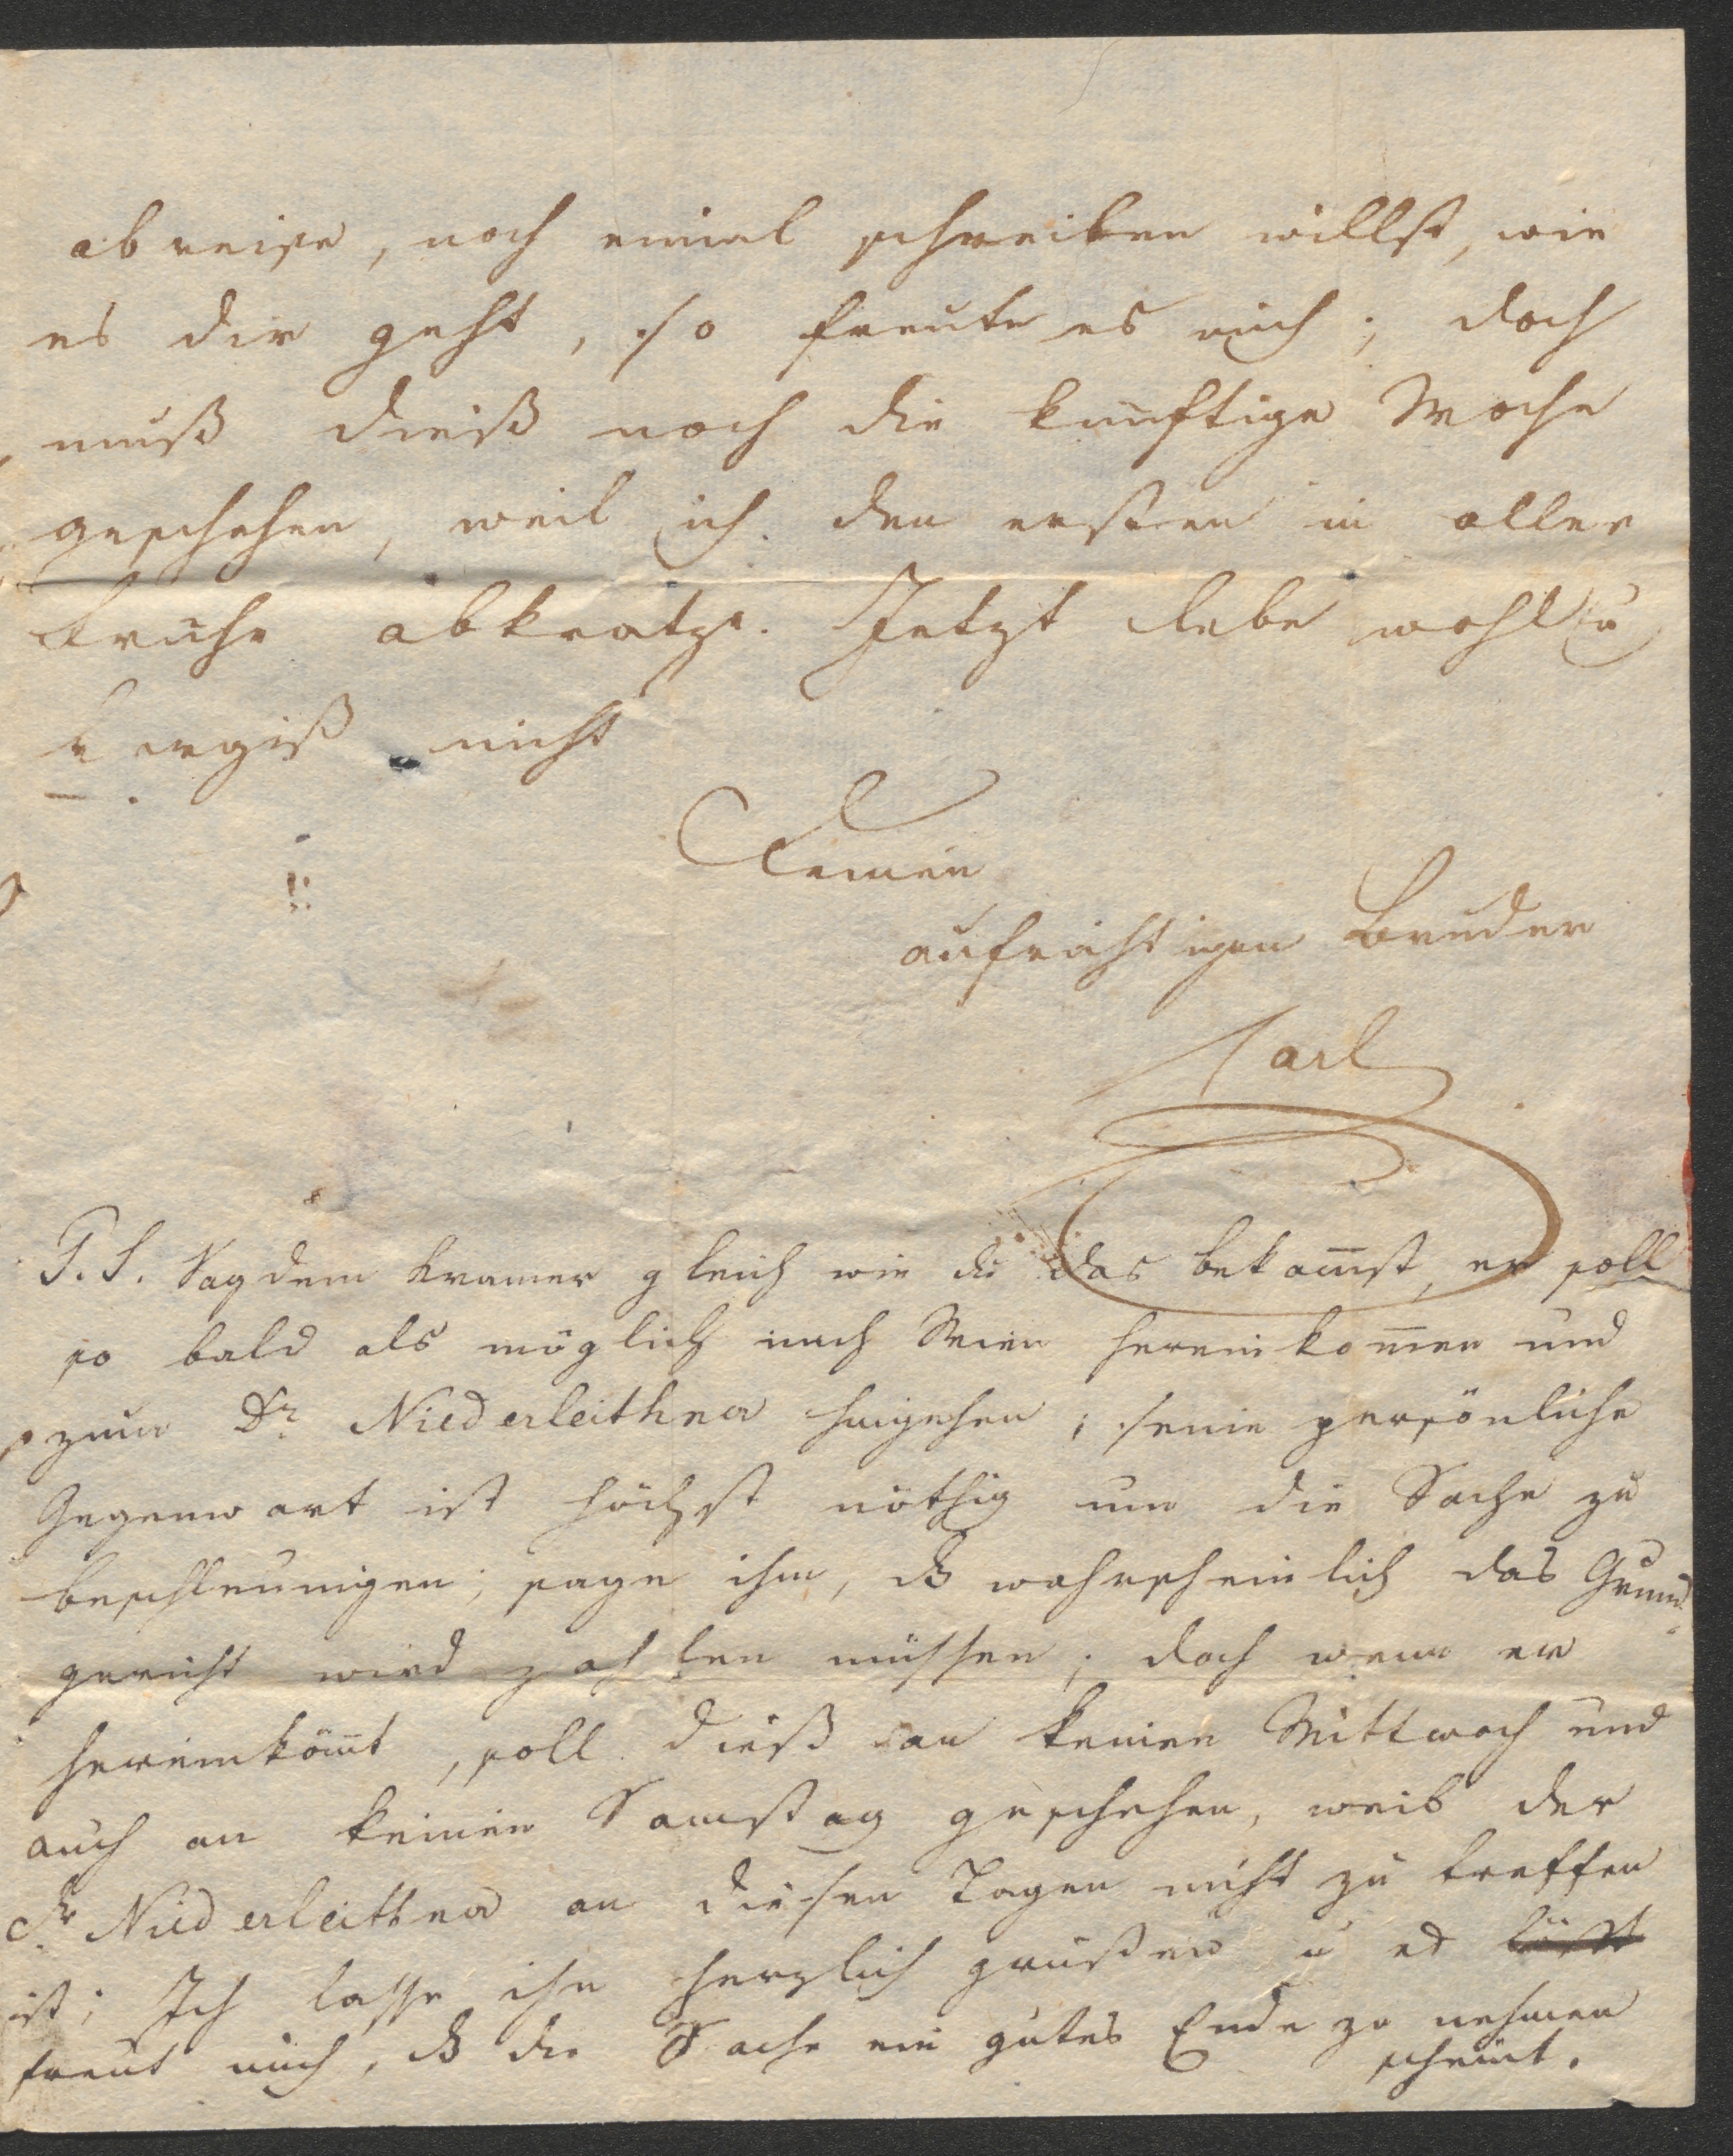 abreise, noch einmal schreiben willst, wie
es dir geht, so freute es mich; doch
muß dieß noch die künftige Woche
geschehen, weil ich den ersten in aller
Fruhe abkratze. Jetzt lebe wohl u
vergiß nicht
Deinen
aufrichtigen Bruder
Carl
P.S. Sag dem Kramer gleich wie du das bekom̅st, er soll
so bald als möglich nach Wien hereinkom̅en und
zum Dr. Niederleithner hingehen; seine persönliche
Gegenwart ist höchst nöthig um die Sache zu
beschleunigen; sage ihm, dß wahrscheinlich das Grund-
gericht wird zahlen müssen; doch wenn er
hereinköm̅t, soll dieß an keinen Mittwoch und
auch an keinen Samstag geschehen, weil der
Dr. Niederleithner an diesen Tagen nicht zu treffen
ist; Ich lasse ihn herzlich grüßen u es
freut mich, dß die Sache ein gutes Ende zu nehmen
scheint.